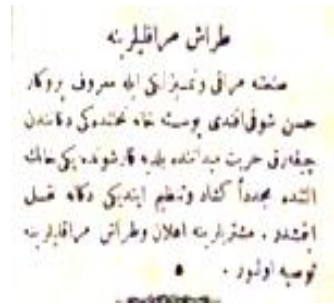 طراش مراقلیلرینه
صنعته مراقی و تمیزلكی ایله معروف پروكار
حسن شوقی افندی پوسته خانه تحتنده‌كی دكانندن
چیقارق حریت میداننده بلدیه قارشوسنده یكی خانك
آلتنده مجدداً كشاد و تنظیم ایتدیكی دكانه نقل
ایتمشدر . مشتریلرینه اعلان و طراش مراقلیلرینه
توصیه اولنور .